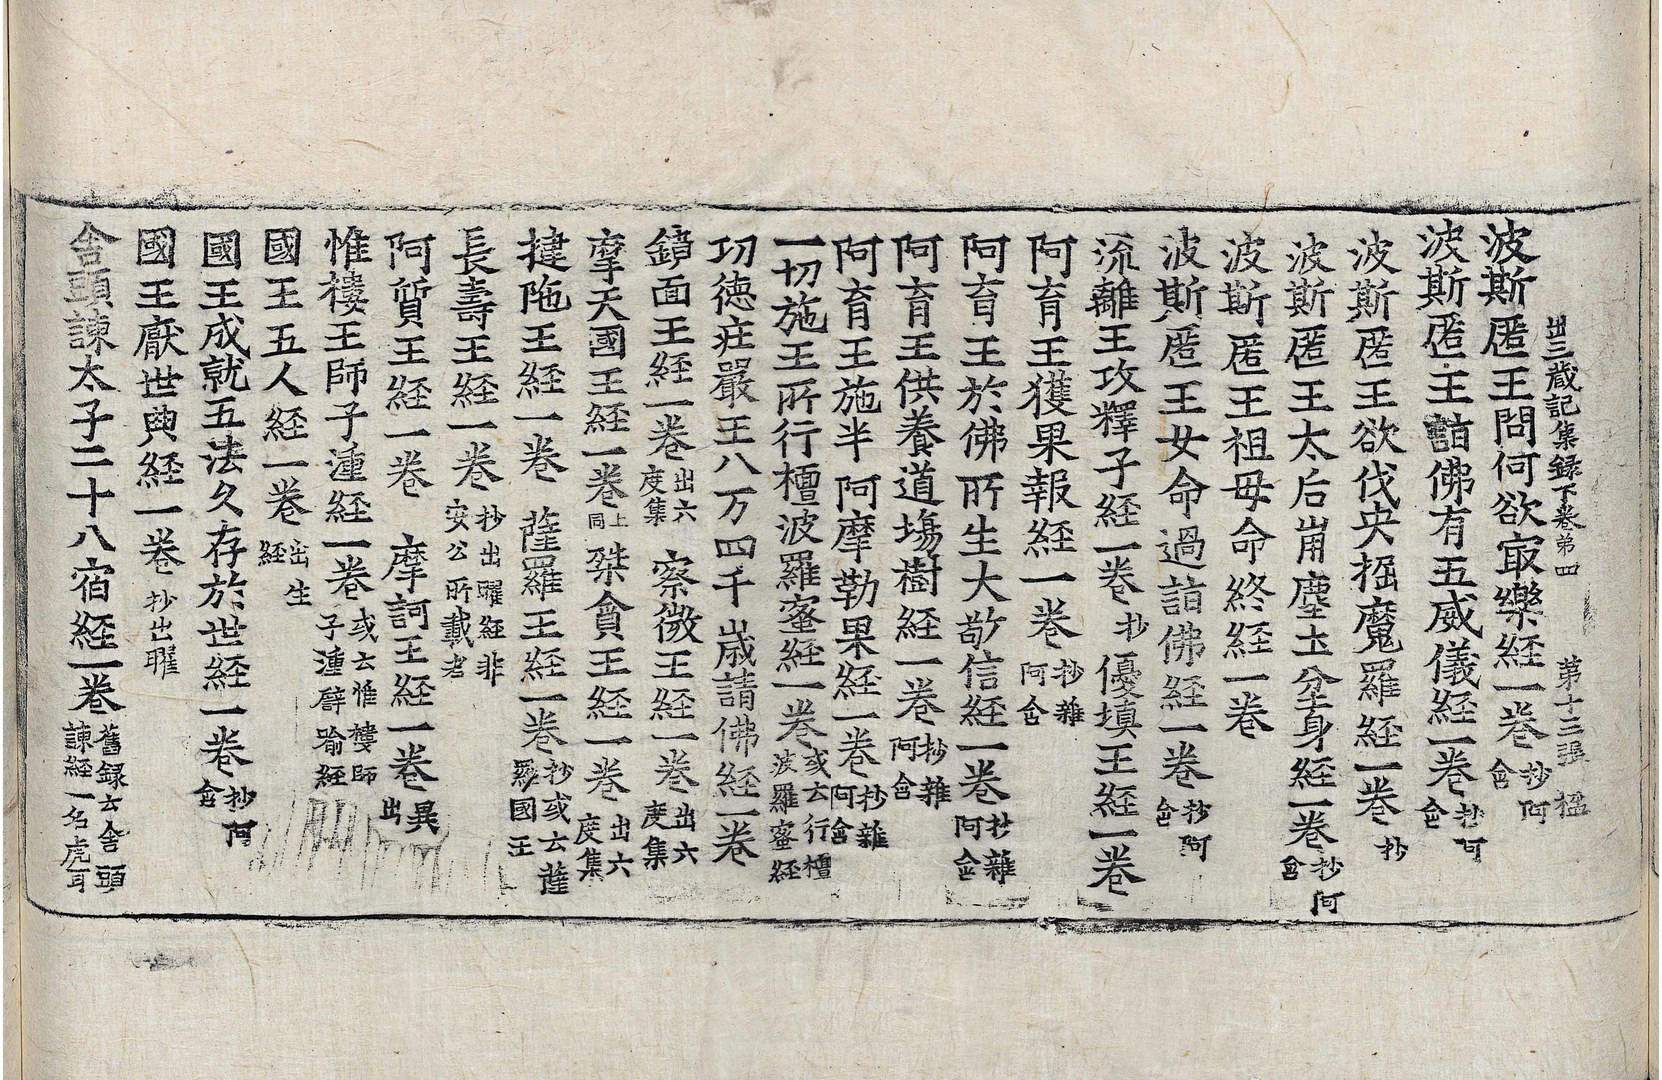 出三蔵記集録下卷第四 第十三張 楹
波斯匿王問何欲㝡樂経一卷 抄阿含
波斯匿王詣佛有五威儀経一卷 抄阿含
波斯匿王欲伐央掘魔羅経一卷 抄
波斯匿王太后崩塵土坌身経一卷 抄阿含
波斯匿王祖母命終経一卷
波斯匿王女命過詣佛経一卷 抄阿含
流離王攻釋子経一卷 抄 優填王経一卷
阿育王獲果報経一卷 抄雜阿含
阿育王於佛所生大敬信経一卷 抄雜阿含
阿育王供養道場樹経一卷 抄雜阿含
阿育王施半阿摩勒果経一卷 抄雜阿含
一切施王所行檀波羅蜜経一卷 或云行檀波羅蜜経
功徳庄嚴王八万四千歳請佛経一卷
鏡面王経一卷 出六度集 察微王経一卷 出六度集
摩天國王経一卷 上同 桀貪王経一卷 出六度集
揵陁王経一卷 薩羅王経一卷 抄或云薩羅國王
長壽王経一卷 抄出曜経非安公所載者
阿質王経一卷 摩訶王経一卷 異出
惟樓王師子湩経一卷 或云惟樓師子湩譬喻経
國王五人経一卷 出生経
國王成就五法久存於世経一卷 抄阿含
國王厭世典経一卷 抄出曜
舍頭諫太子二十八宿経一卷 舊録云舍頭諫経一名虎耳